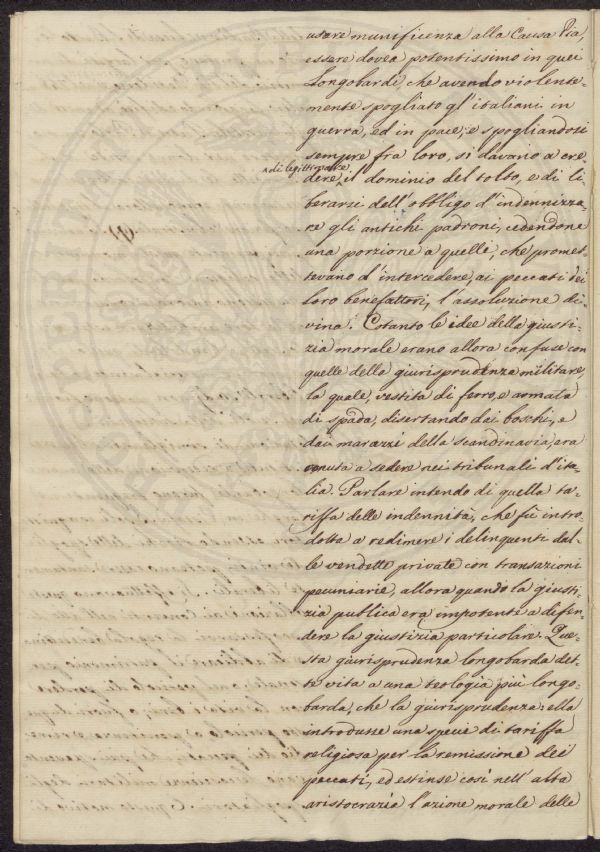 usare munificenza alla Causa Pia,
essere dovea potentissimo in quei
Longobardi, che avendo violente-
mente spogliato gl'italiani in
guerra, ed in pace, e spogliandosi
sempre fra loro, si davano a cre-
^di legittimare
dere, il dominio del tolto, e di li-
berarsi dell'obbligo d'indennizza-
re gli antichi padroni, cedendone
una porzione a quelle, che promet-
tevano d'intercedere, ai peccati dei
loro benefattori, l'assoluzione di-
vina. Cotanto le idee della giusti-
zia morale erano allora confuse con
quelle della giurisprudenza militare,
la quale, vestita di ferro, e armata
di spada, disertando dai boschi, e
dai marazzi della Scandinavia, era
venuta a sedere nei tribunali d'ita-
lia. Parlare intendo di quella ta-
riffa delle indennità, che fù intro-
dotta a redimere i delinquenti dal-
le vendette private con transazioni
pecuniarie, allora quando la giusti-
zia publica era impotente a difen-
dere la giustizia particolare. Que-
sta giurisprudenza longobarda det-
te vita a una teologia più longo-
barda, che la giurisprudenza: ella
introdusse una specie di tariffa
religiosa per la remissione dei
peccati, ed estinse così nell'alta
aristocrazia l'azione morale delle